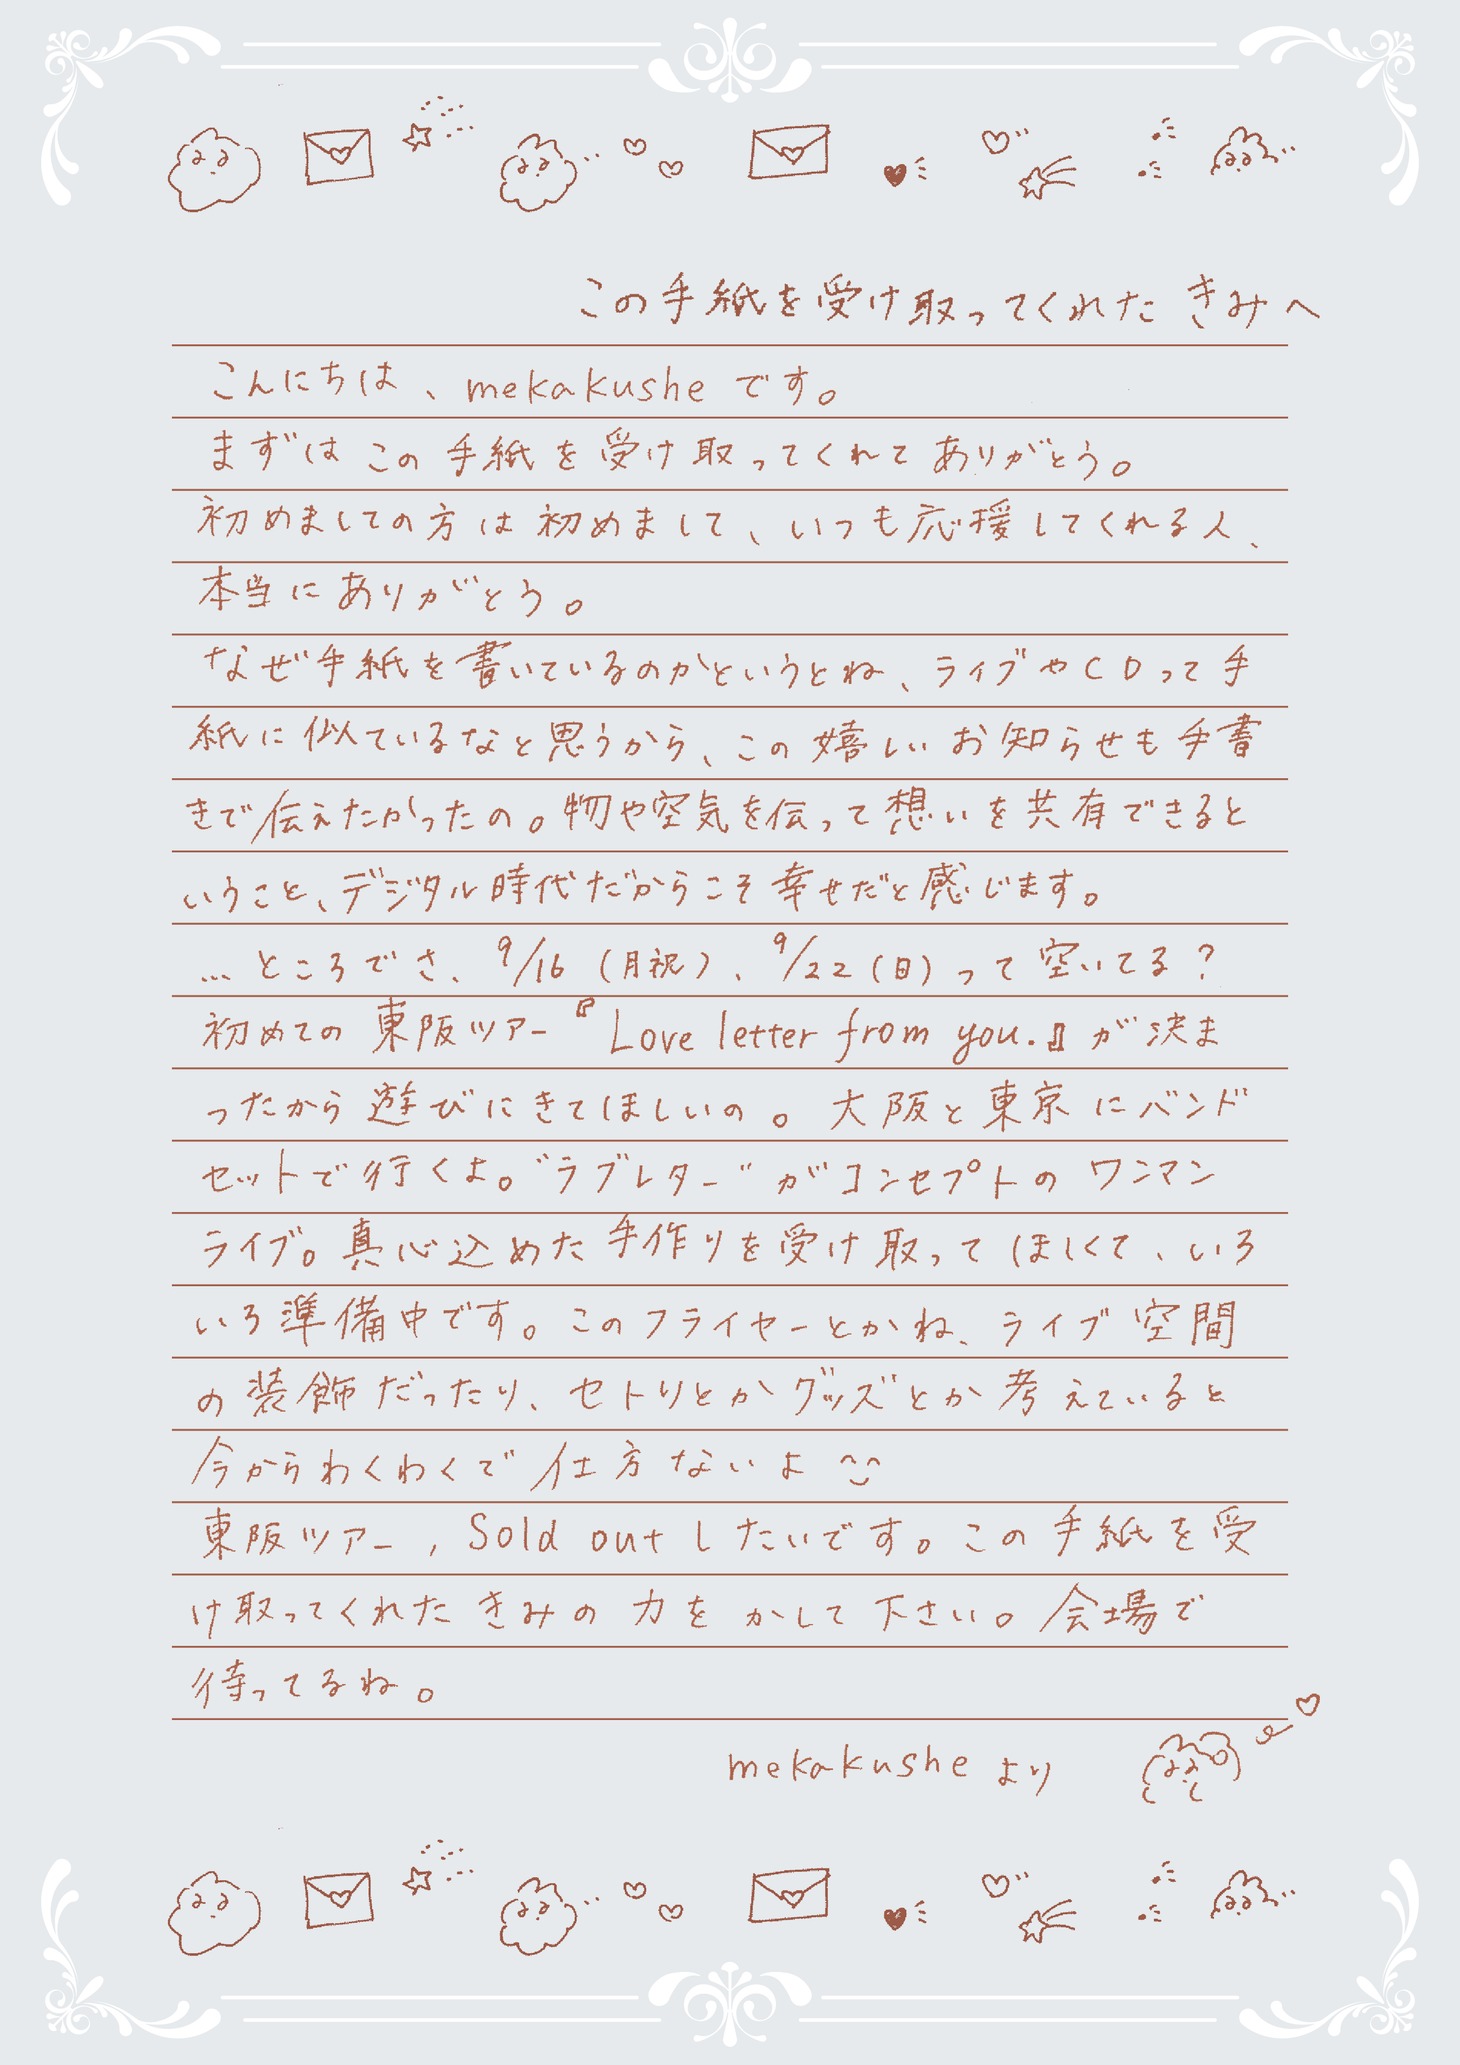 この手紙を受け取ってくれた きみへ
こんにちは、mekakushe です。
まずは この 手紙を 受け取ってくれて ありがとう。
初めましての方は 初めまして、いつも応援してくれる人、
本当に ありがとう。
なぜ手紙を書いているのかというとね、ライブやCDって手
紙に似ているなと思うから、この嬉しいお知らせも手書
きで伝えたかったの。物や空気を伝って想いを共有できると
いうこと、デジタル時代だからこそ幸せだと感じます。
…ところでさ、9/16（月祝）、9/22（日）って空いてる？
初めての 東阪ツアー『Love letter from you.』が決ま
ったから 遊びにきてほしいの。大阪と東京にバンド
セットで行くよ。"ラブレター"がコンセプトの ワンマン
ライブ。真心込めた手作りを受け取ってほしくて、いろ
いろ準備中です。このフライヤーとかね、ライブ空間
の装飾だったり、セトリとかグッズとか考えていると
今からわくわくで仕方ないよ
東阪ツアー, Sold out したいです。この手紙を受
け取ってくれた きみの 力を かして下さい。会場で
待ってるね。
mekakushe より